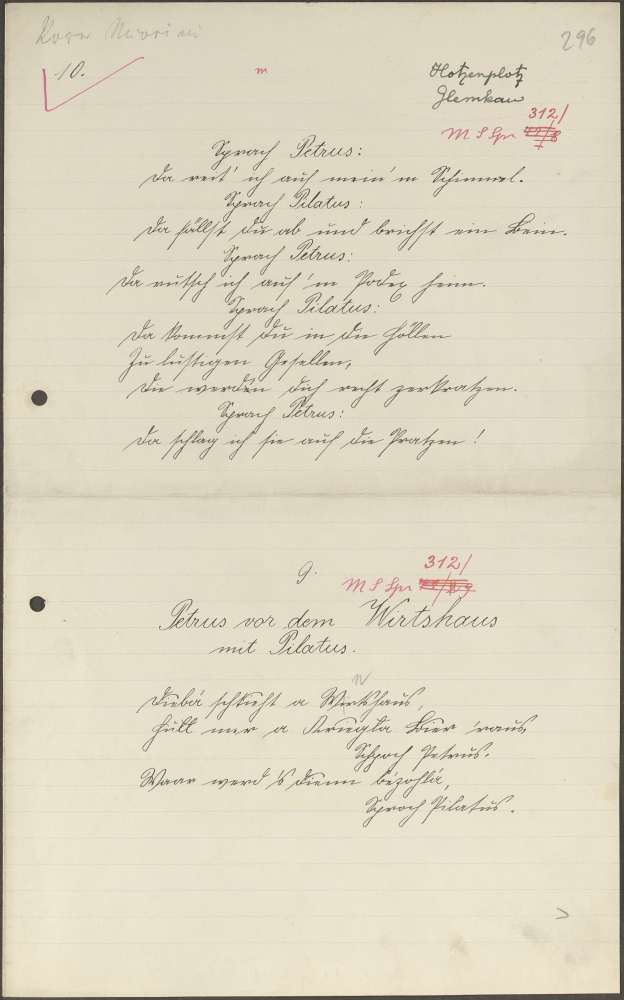 296
10.
m
Hotzenplotz
Glemkau
312/
M S Spr
Sprach Petrus:
Da reit' ich auf mein'm Schimmel.
Sprach Pilatus:
Da fällst du ab und brichst ein Bein.
Sprach Petrus:
Da rutsch ich auf'm Podex heim.
Sprach Pilatus:
Da kommst du in die Höllen
Zu lustigen Gesellen,
Die werden dich recht zerkratzen.
Sprach Petrus:
Da schlag ich sie auf die Pratzen!
9.
312/
M S Spr
Petrus vor dem Wirtshaus
mit Pilatus.
schteht a Wirtshaus,
Hull mer a Kriegla Bier 'raus
Schproch Petrus.
Waar werd 's dienn bezohla,
Sproch Pilatus.